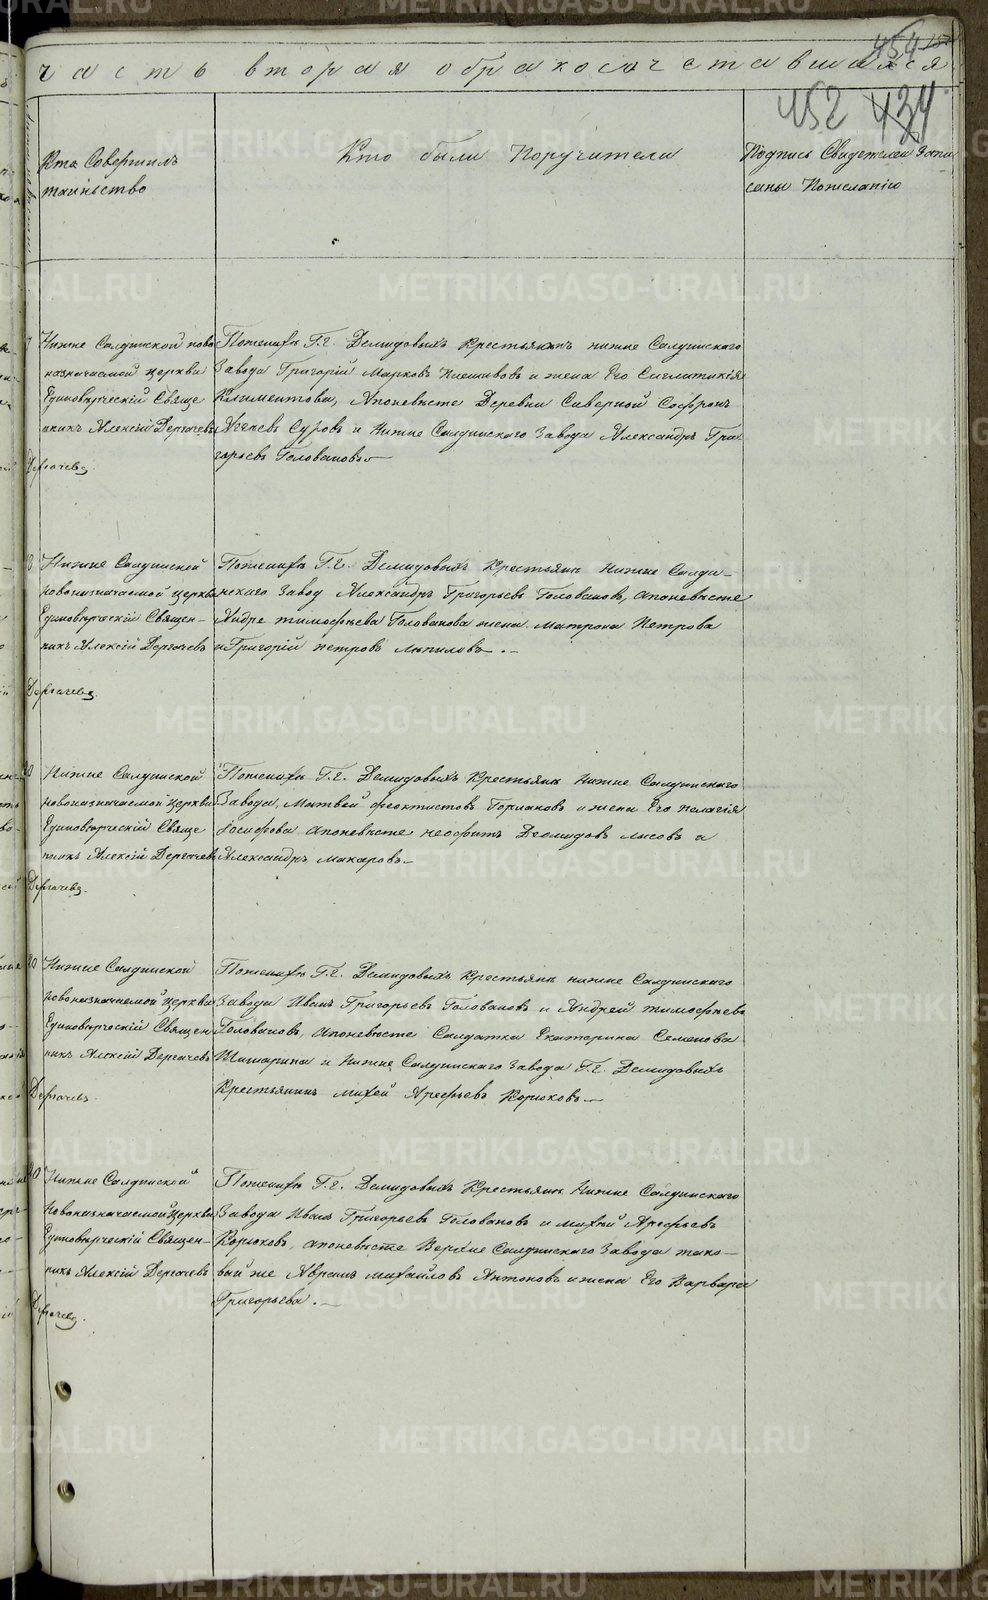 454
часть вторая о бракосочетавшихся
452 434
Кто Совершилъ
таинъство
Кто были Поручители
Подпись Свидетелей Запи
саны Пожеланію
Нижне Салдинской ново
назначаемой церкви
Единоверческій Свяще
никъ Алексій Дергачевъ
Дергачевъ
Пожених Г.г. Демидовыхъ Крестьянинъ нижне Салдинскаго
Завода Григорій Марковъ и жена Его
Климентова, Апоневесте Деревни Северной Софронъ
Суровъ и Нижне Салдинскаго Завода Александръ Гри
горьевъ Головановъ
Нижне Салдинской
новоназначаемой церкви
Единоверческій Священ-
никъ Алексій Дергачевъ
Дергачевъ
Пожених Г.г. Демидовыхъ Крестьянъ Нижне Салди-
нскаго Завод Александръ Григорьевъ Головановъ, Апоневесте
Андре тимофеева Голованова жена Матрона Петрова
и Григорій петровъ
Нижне Салдинской
новоназначаемой церкви
Единоверческій Свяще
никъ Алексій Дергачевъ
Дергачевъ.
Пожених Г.г. Демидовыхъ Крестьянъ Нижне Салдинскаго
Завода, Матвей феоктистовъ Горлаковъ и жена Его пелагія
Іосифова Апоневесте неофитъ Деомидовъ лисовъ и
Александръ макаровъ
Нижне Салдинской
новоназначаемой церкви
Единоверческій Священ
никъ Алексій Дергачевъ
Дергачевъ.
Пожених Г.г. Демидовыхъ Крестьянъ нижне Салдинскаго
Завода Иванъ Григорьевъ Головановъ и Андрей тимофеевъ
Головановъ, Апоневесте Салдатка Екатерина Семенова
Шишарина и Нижне Салдинскаго Завода Г.г. Демидовыхъ
Крестьянинъ михей Арефьевъ Корюковъ
Нижне Салдинской
новоназначаемой церкви
Единоверческій Священ-
никъ Алексій Дергачевъ
Дергачевъ.
Пожених Г.г. Демидовыхъ Крестьянъ Нижне Салдинскаго
Завода Иванъ Григорьевъ Головановъ и михей Арефьевъ
Корюковъ, апоневесте Верхне Салдинскаго Завода тако-
вый же Аврамъ михайловъ Антоновъ и жена Его Варвара
Григорьева.
METRIKI.GASO-URAL.RU